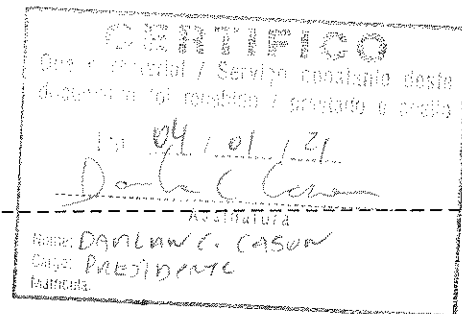 CERTIFICO
Que o material / Serviço constante deste
documento foi recebido / prestado e aceito
Em 04 / 01 / 21
Assinatura
Nome:
Cargo: PRESIDENTE
Matrícula: